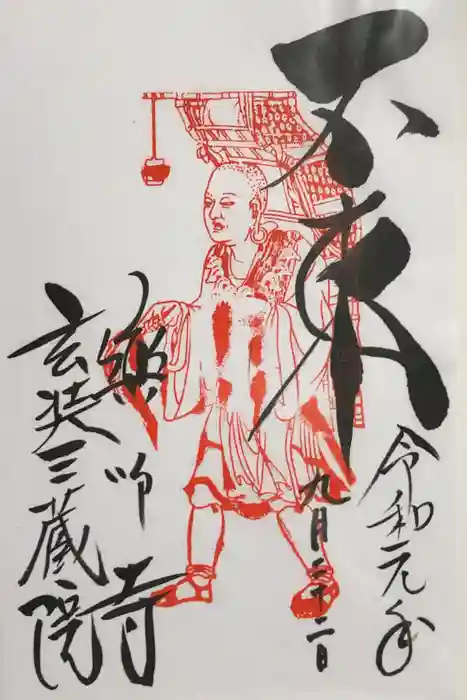 不東
令和元年
九月二十二日
薬師寺
玄奘三蔵院